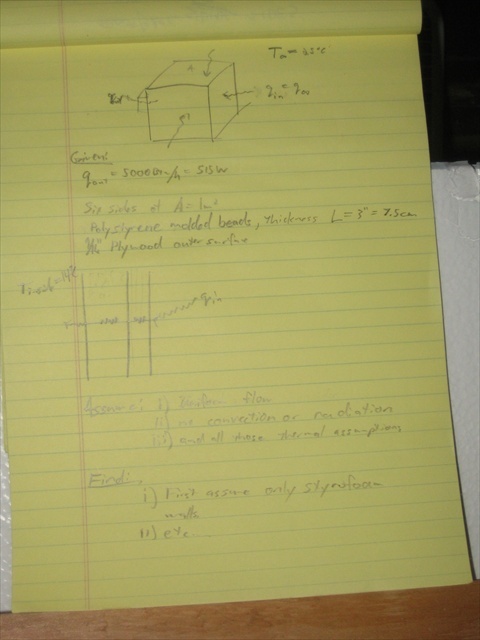 T∞ = 25°C
q_in = q_out
Given:
q_out = 5000 BTU/h = 513 W
Six sides at A = 1m²
Polystyrene molded beads, thickness L = 3" = 7.5cm
Plywood outer surface
q_in
Assume: i) Uniform flow
ii) no convection or radiation
iii) and all those thermal assumptions
Find:
i) First assume only styrofoam
walls
ii) etc